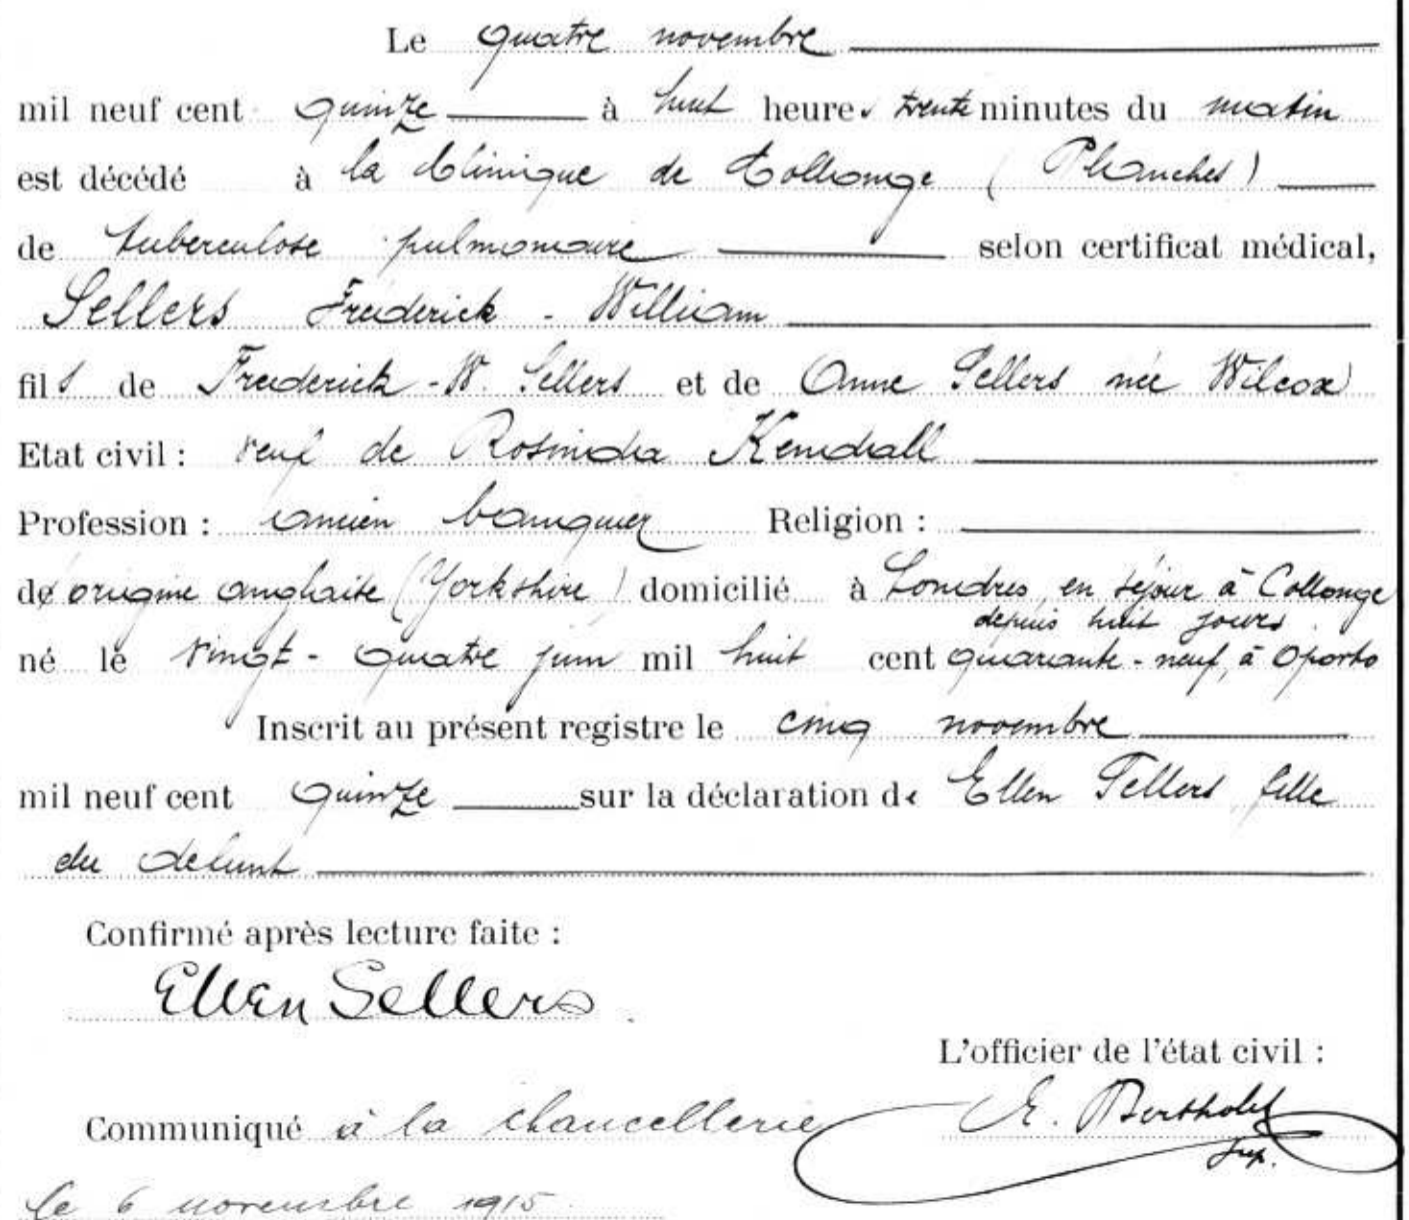 Le quatre novembre
mil neuf cent quinze à huit heures trente minutes du matin
est décédé à la Clinique de Collonge (Planches)
de tuberculose pulmonaire selon certificat médical,
Sellers Frederick - William
fils de Frederick - W. Sellers et de Anne Sellers née Wilcox
Etat civil : veuf de Rosinda Kendrall
Profession : ancien banquier Religion :
de origine anglaise (Yorkshire) domicilié à Londres, en séjour à Collonge
depuis huit jours.
né le vingt - quatre juin mil huit cent quarante - neuf, à Oporto
Inscrit au présent registre le cinq novembre
mil neuf cent quinze sur la déclaration de Ellen Sellers, fille
du defunt
Confirmé après lecture faite :
Ellen Sellers.
L'officier de l'état civil :
E. Bertholet
sup.
Communiqué à la chancellerie
le 6 novembre 1915.